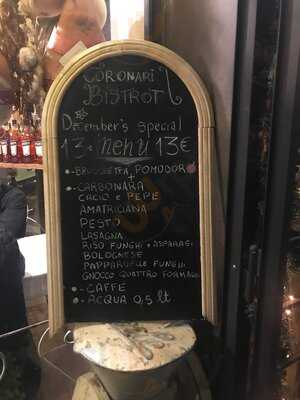 CORONARI
BISTROT
December's special
13€ menù 13€
- BRUSCHETTA POMODORO
+
- CARBONARA
CACIO e PEPE
AMATRICIANA
PESTO
LASAGNA
RISO FUNGHI + ASPARAGI
BOLOGNESE
PAPPARDELLE FUNGHI
GNOCCO QUATTRO FORMAGG
- CAFFE
- ACQUA 0,5 lt